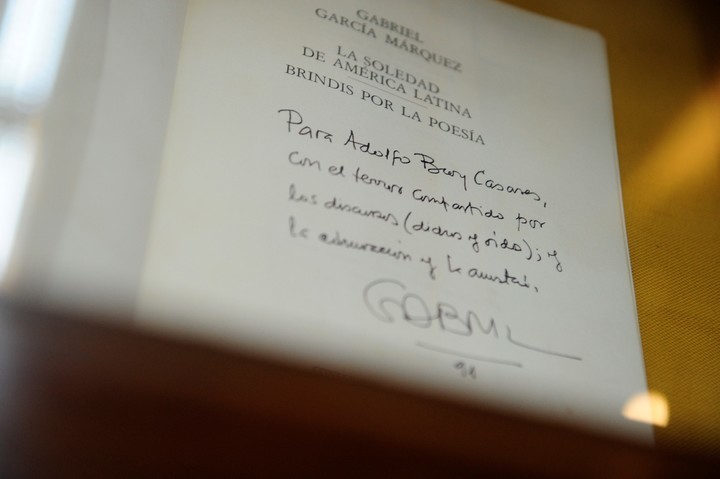 GABRIEL
GARCÍA MÁRQUEZ
LA SOLEDAD
DE AMÉRICA LATINA
BRINDIS POR LA POESÍA
Para Adolfo Bioy Casares,
con el terror compartido por
los discursos (dichos y oídos); y
la admiración y la amistad,
GABRIEL